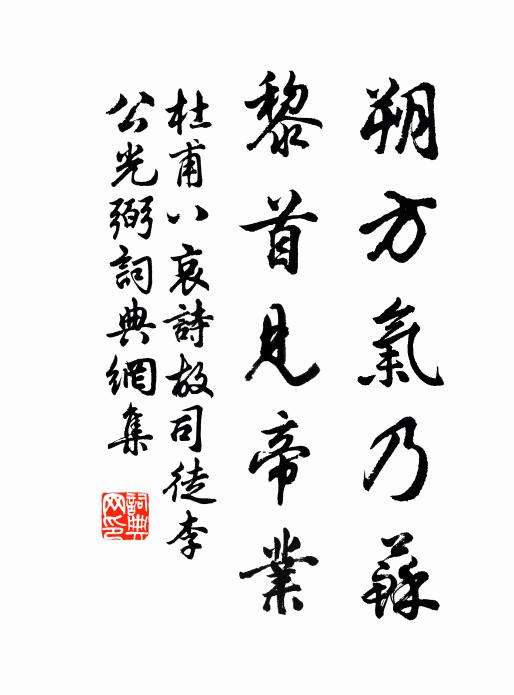 朔方氣乃蘇
黎首見帝業
杜甫八哀詩故司徒李
公光弼詞典網集
詞典
网印